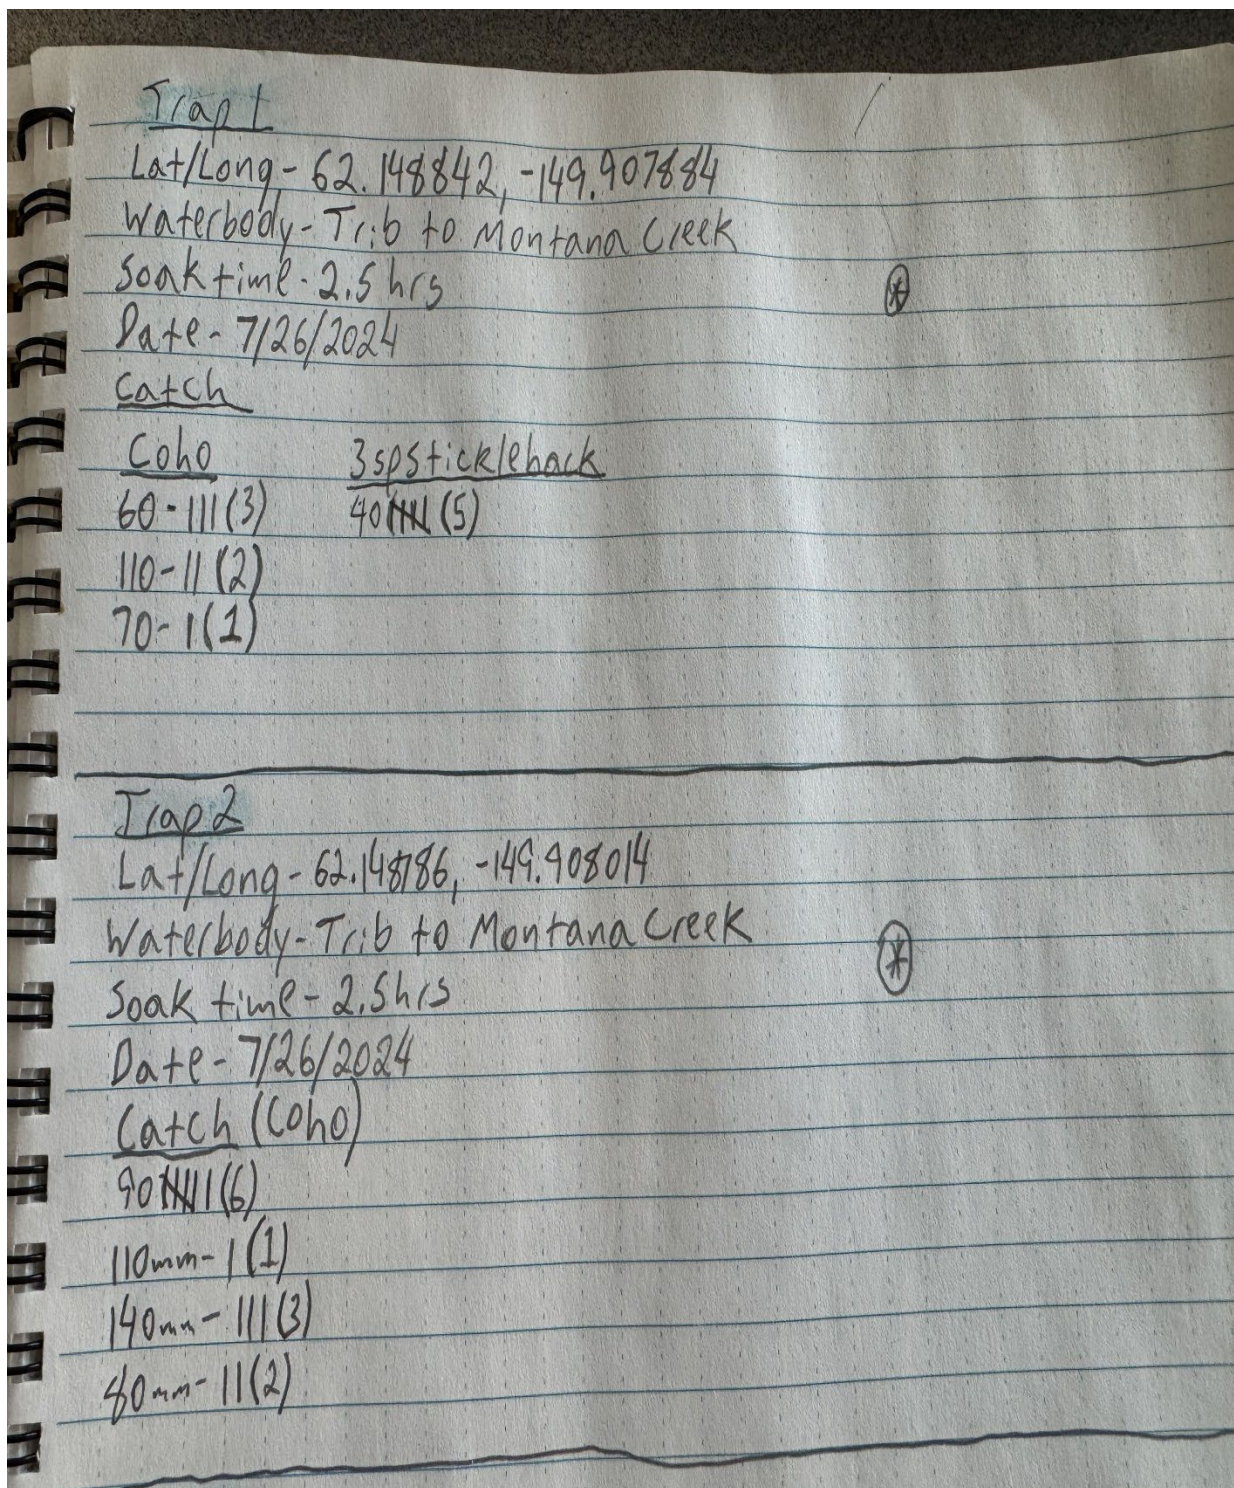 Trap 1
Lat/Long - 62.148842, -149.907884
Waterbody - Trib to Montana Creek
Soak time - 2.5 hrs
Date - 7/26/2024
Catch
Coho 3spstickleback
60 - III (3) 40 IIII (5)
110 - II (2)
70 - I (1)
Trap 2
Lat/Long - 62.148786, -149.908014
Waterbody - Trib to Montana Creek
Soak time - 2.5hrs
Date - 7/26/2024
Catch (Coho)
90 IIII I (6)
110mm - I (1)
140mm - III (3)
80mm - II (2)